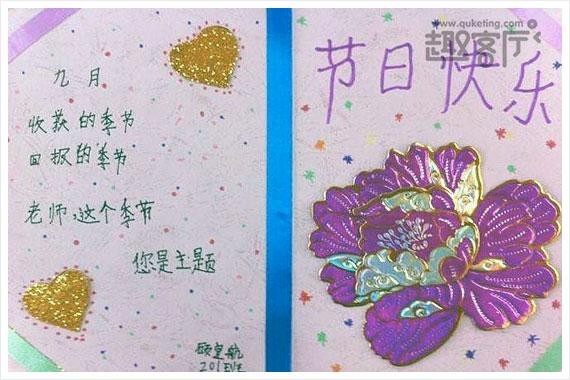 九月
收获的季节
回报的季节
老师,这个季节
您是主题
201班
节日快乐
www.quketing.com
趣客厅